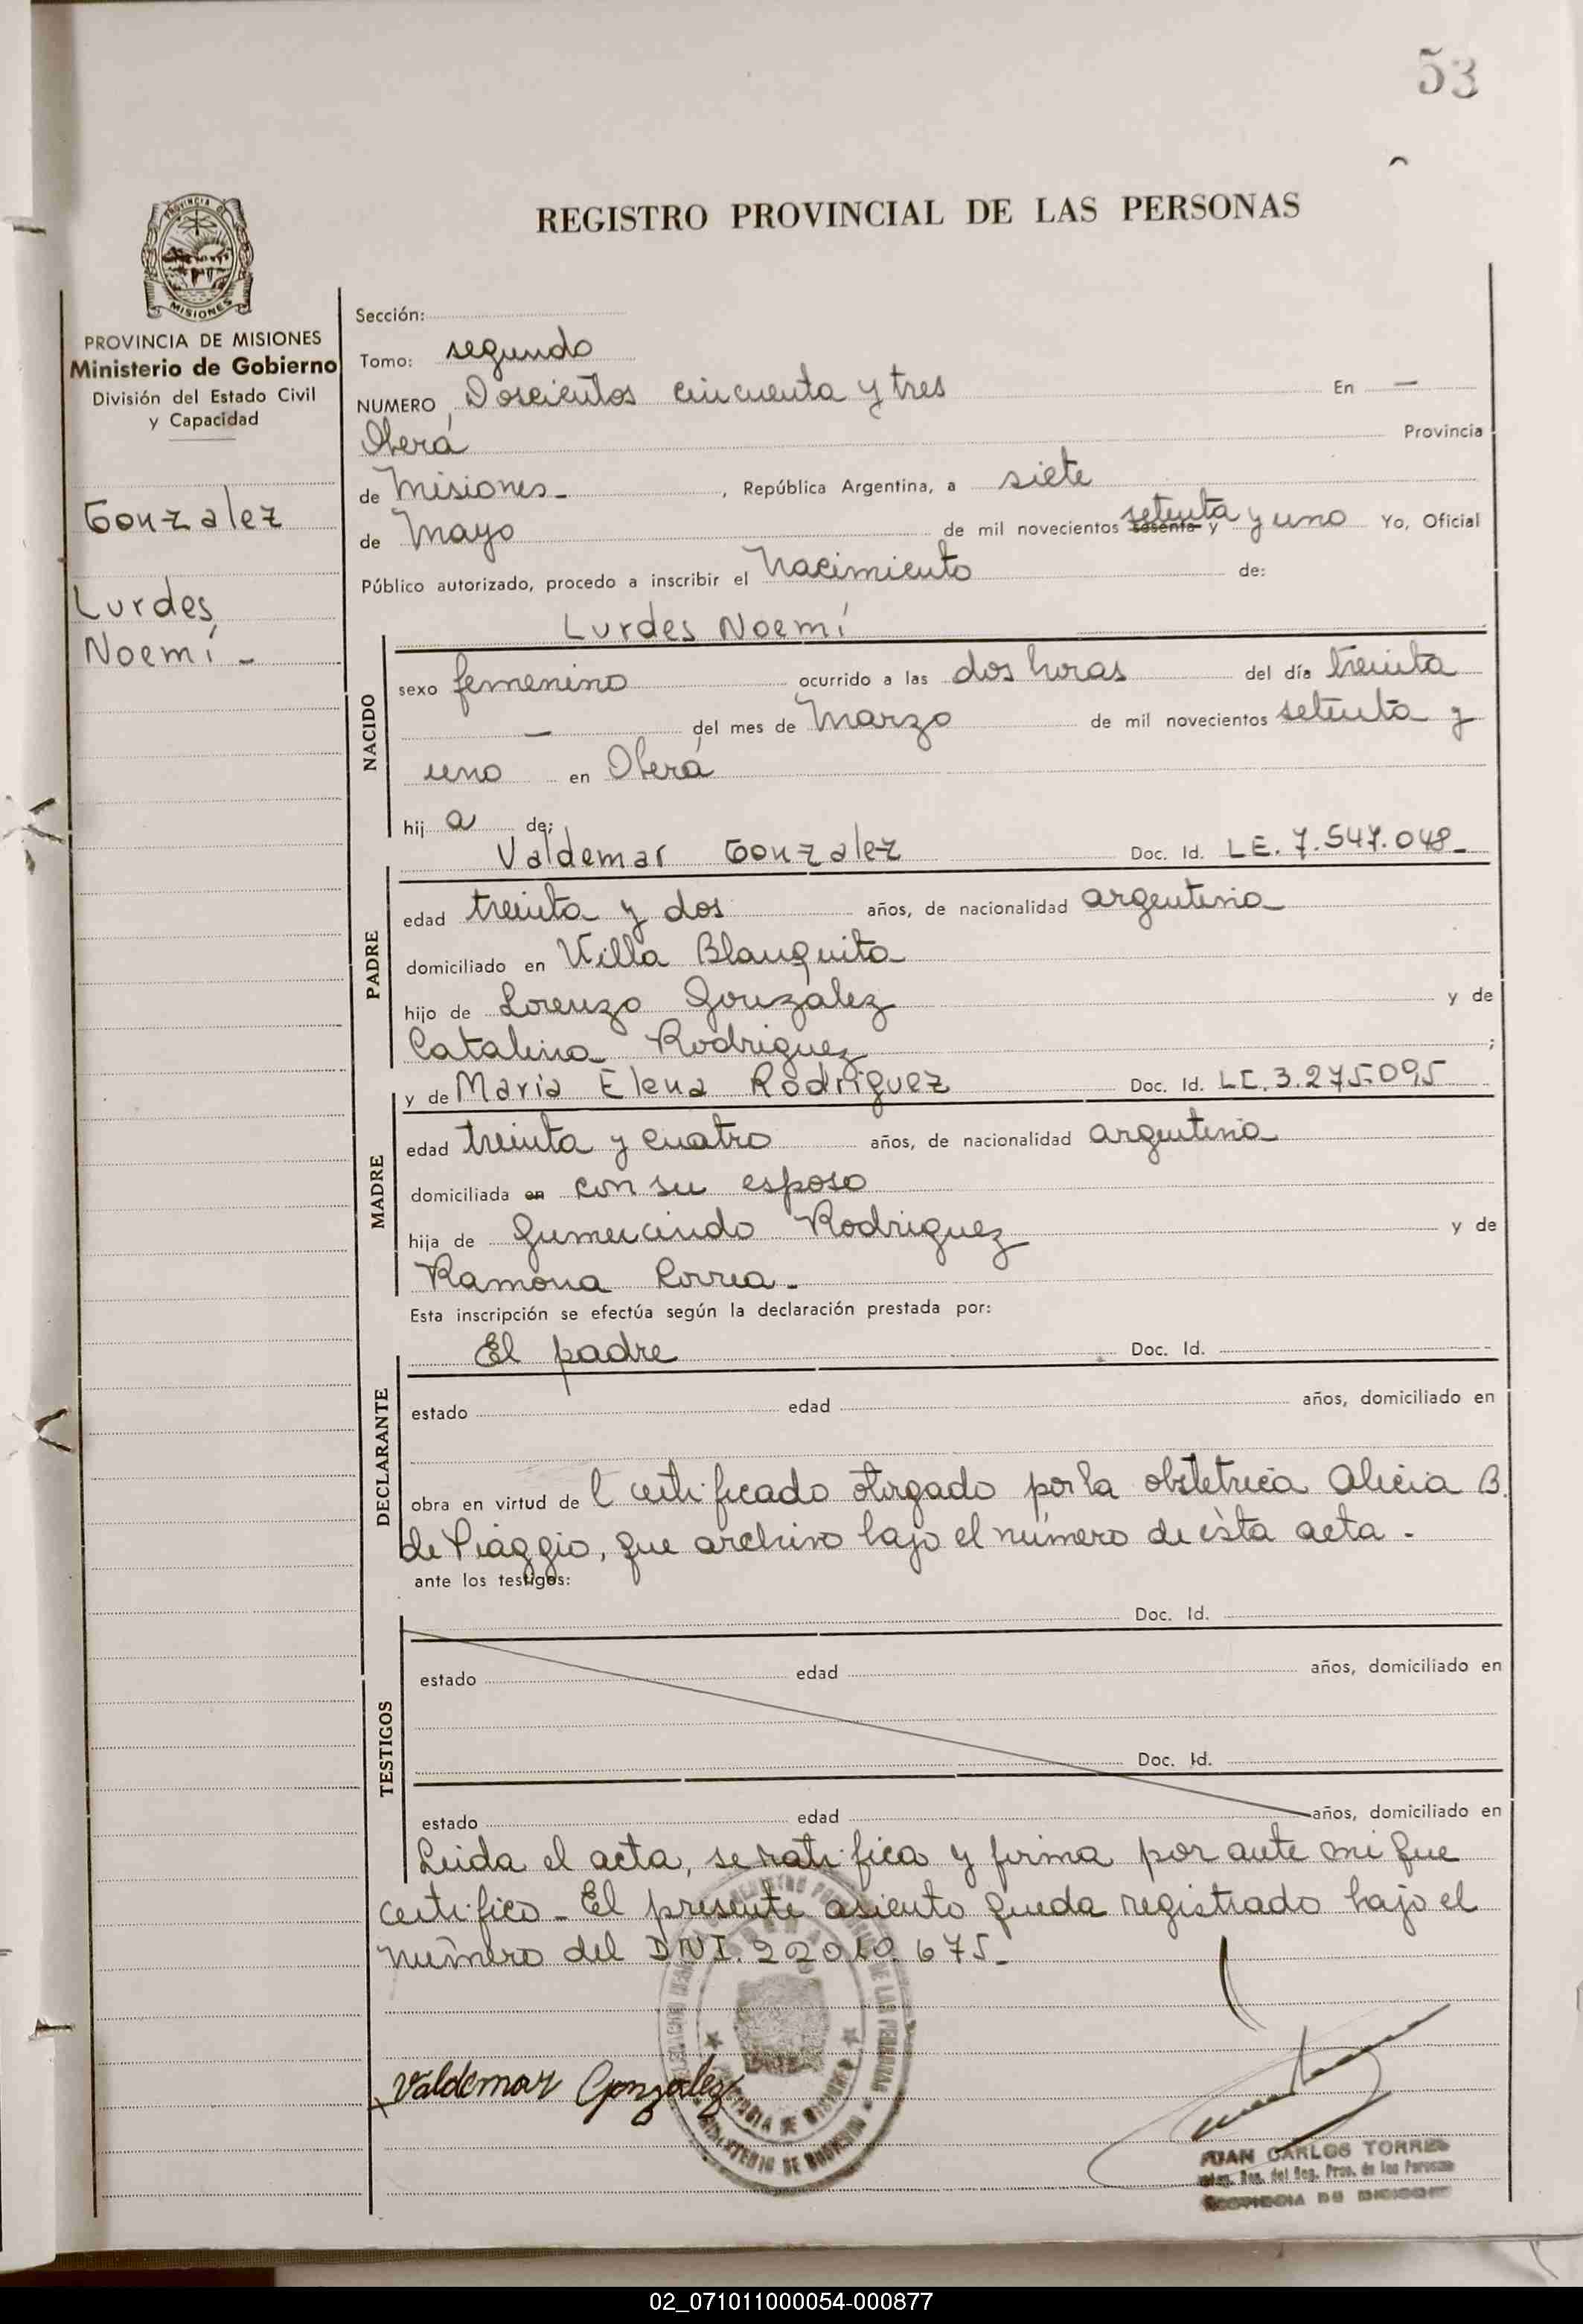 53
REGISTRO PROVINCIAL DE LAS PERSONAS
MISIONES
PROVINCIA DE MISIONES
Ministerio de Gobierno
División del Estado Civil
y Capacidad
Gonzalez
Lurdes
Noemí -
Sección:
Tomo: segundo
NUMERO Doscientos cincuenta y tres En —
Oberá Provincia
de Misiones - , República Argentina, a siete
de Mayo de mil novecientos sesenta y setenta y uno Yo, Oficial
Público autorizado, procedo a inscribir el Nacimiento de:
Lurdes Noemí
NACIDO
sexo femenino ocurrido a las dos horas del día treinta
— del mes de Marzo de mil novecientos setenta y
uno en Oberá
hij a de:
Valdemar Gonzalez Doc. Id. LE. 7.547.048-
PADRE
edad treinta y dos años, de nacionalidad argentina
domiciliado en Villa Blanquita
hijo de Lorenzo González y de
Catalina Rodriguez ;
y de Maria Elena Rodriguez Doc. Id. LC. 3.275.095
MADRE
edad treinta y cuatro años, de nacionalidad argentina
domiciliada en con su esposo
hija de Gumercindo Rodriguez y de
Ramona Correa -
Esta inscripción se efectúa según la declaración prestada por:
El padre Doc. Id.
DECLARANTE
estado edad años, domiciliado en
obra en virtud de l certificado otorgado por la obstetrica Alicia B.
de Piaggio, que archivo bajo el número de ésta acta -
ante los testigos:
Doc. Id.
TESTIGOS
estado edad años, domiciliado en
Doc. Id.
estado edad años, domiciliado en
Leida el acta, se ratifica y firma por ante mi que
certifico - El presente asiento queda registrado bajo el
número del DNI. 22.010.675 -
Valdemar González
JUAN CARLOS TORRES
del Reg. Prov. de las Personas
02_071011000054-000877